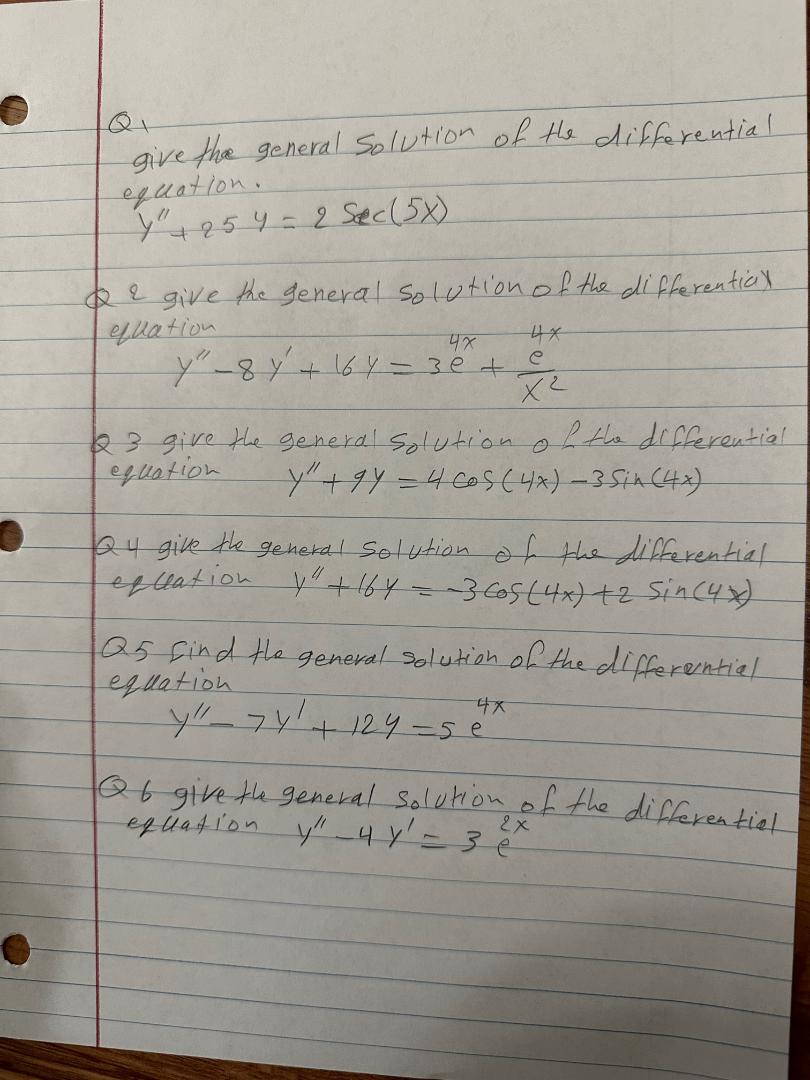 Q1
give the general solution of the differential
equation.
y'' + 25 y = 2 Sec(5x)
Q2 give the general solution of the differential
equation
y'' - 8 y' + 16 y = 3 e^{4x} + \frac{e^{4x}}{x^2}
Q3 give the general solution of the differential
equation y'' + 9y = 4 cos(4x) - 3 Sin(4x)
Q4 give the general solution of the differential
equation y'' + 16y = -3 cos(4x) + 2 Sin(4x)
Q5 find the general solution of the differential
equation
y'' - 7y' + 12y = 5 e^{4x}
Q6 give the general solution of the differential
equation y'' - 4y' = 3 e^{2x}